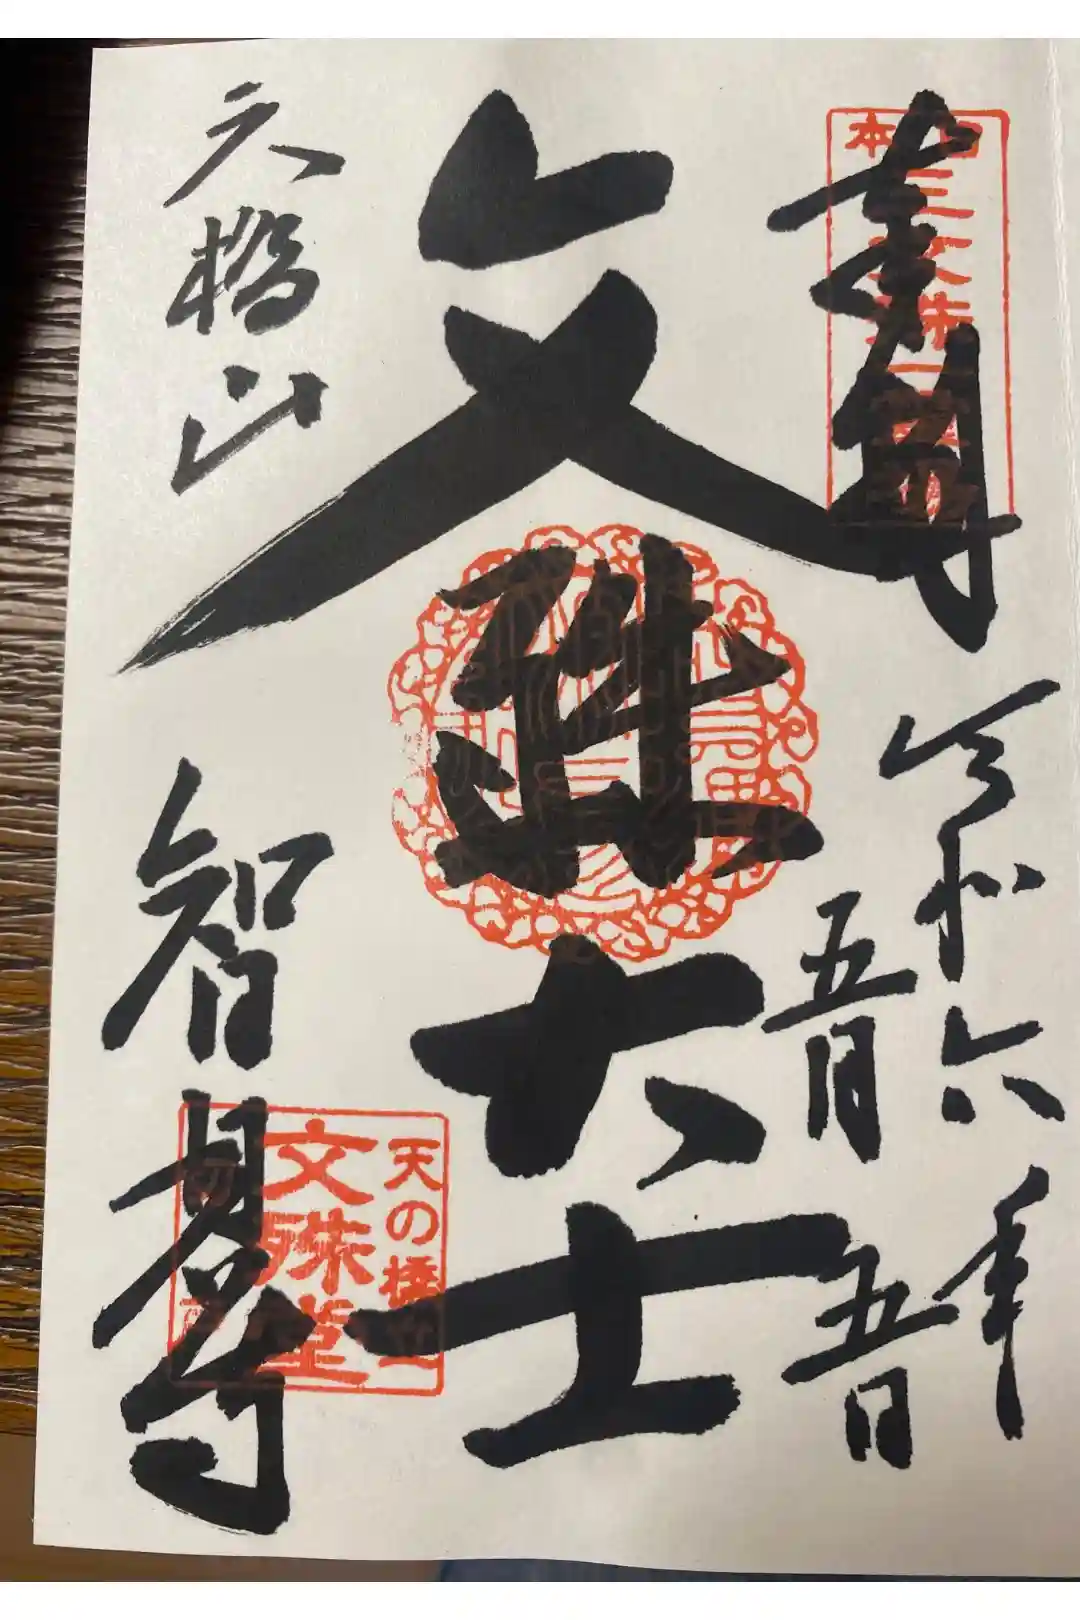 奉
令和六年
五月五日
文殊大士
天橋山
智恩寺
日本三文殊
天の橋立
文殊堂